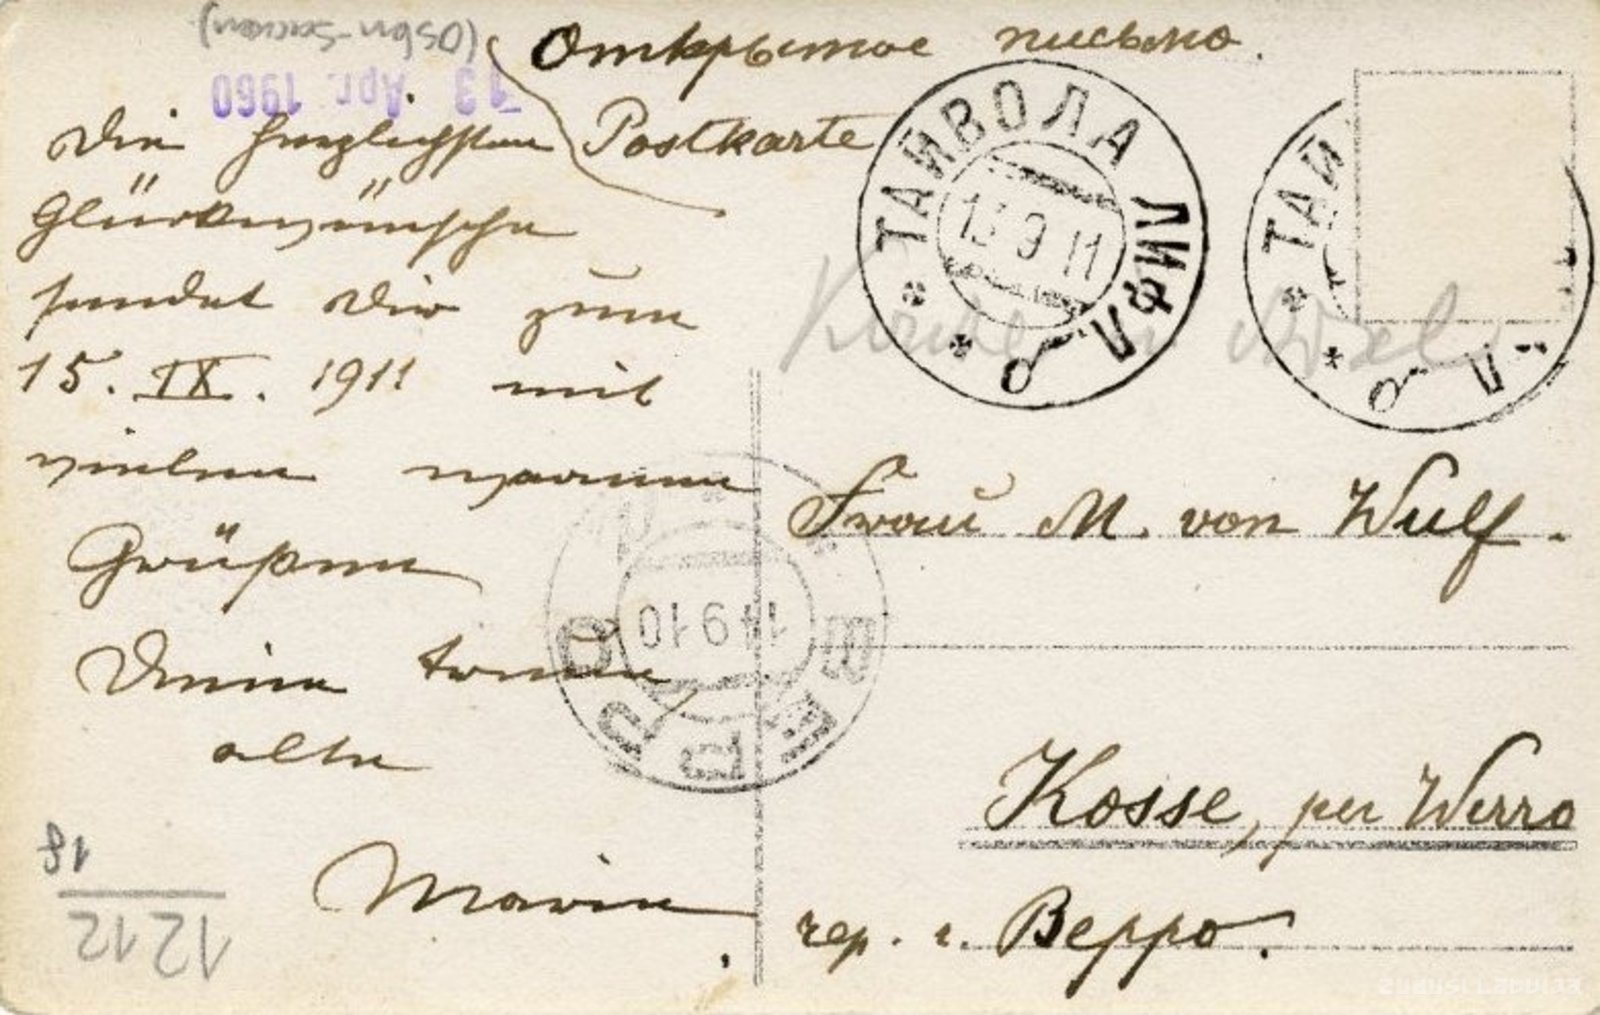 (Osten-Sacken)
13 Apr. 1960
Открытое письмо.
Postkarte
Die herzlichsten
Glückwünsche
sendet Dir zum
15. IX. 1911 mit
vielen warmen
Grüßen
Deine treue,
alte
Marie
ТАЙВОЛА ЛИФЛ.
13 9 11
ТАЙ Л.
ВЕРРО
14 9 10
Frau M. von Wulf.
Kosse, per Werro
чер. г. Верро.
18
1212